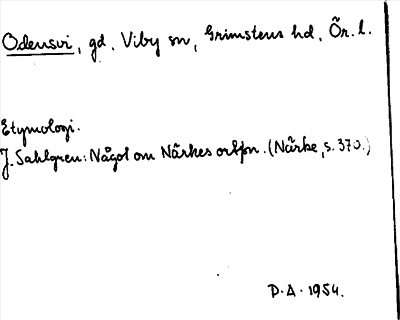 Odensvi, gd, Viby sn, Grimstens hd, Ör. l.
Etymologi.
J. Sahlgren: Något om Närkes ortpn. (Närke, s. 370.)
D.A. 1954.